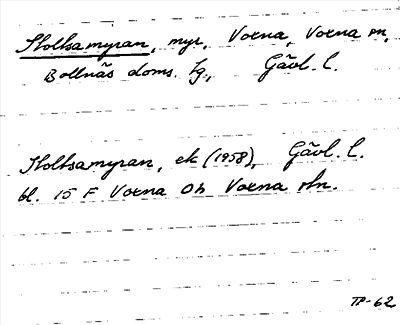 Stoltsamyran, myr, Voxna, Voxna sn,
Bollnäs doms. tg., Gävl. l.
Stoltsamyran, ek (1958), Gävl. l.
bl. 15 F Voxna Oh Voxna shn.
TP-62